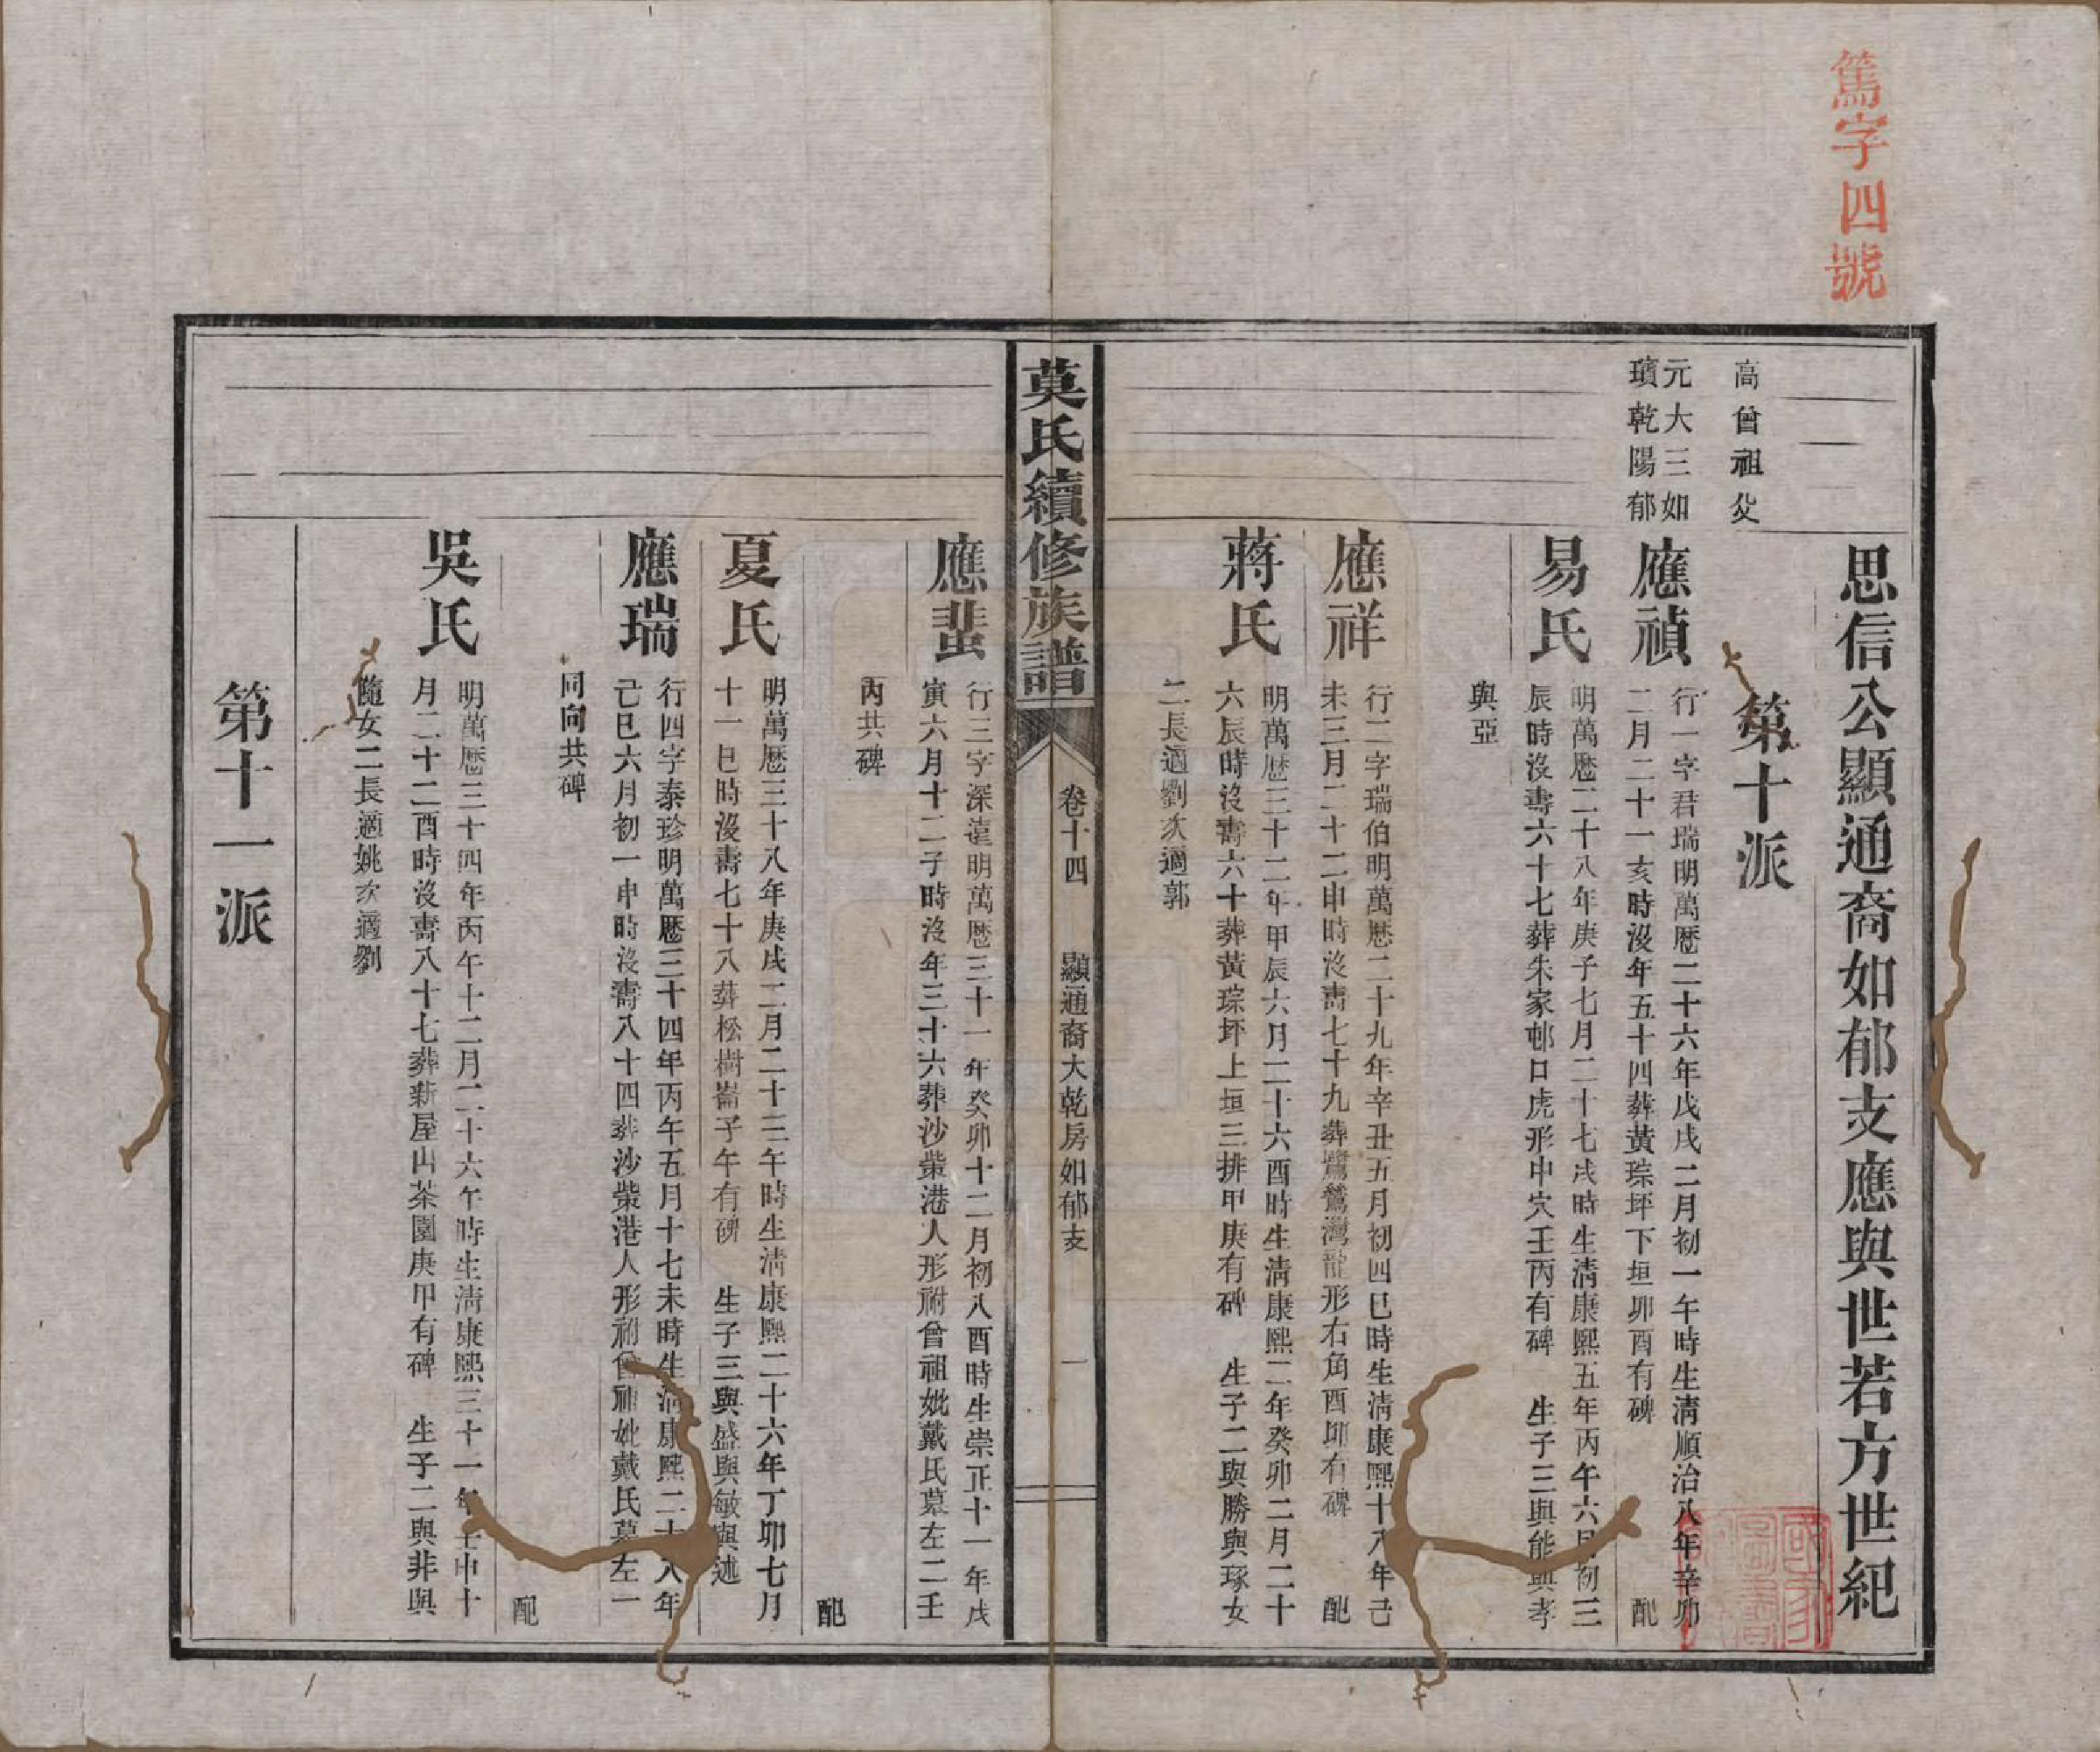 篤字四號
思信公顯通裔如郁支應與世若方世紀
第十派
高曾祖父
元大三如
璸乾陽郁
應禎
行一字君瑞明萬曆二十六年戊戌二月初一午時生清順治八年辛卯
二月二十一亥時沒年五十四葬黃琮坪下垣卯酉有碑 配
易氏
明萬曆二十八年庚子七月二十七戌時生清康熙五年丙午六月初三
辰時沒壽六十七葬朱家邨口虎形中穴壬丙有碑 生子三與能與孝
與亞
應祥
行二字瑞伯明萬曆二十九年辛丑五月初四巳時生清康熙十八年己
未三月二十二申時沒壽七十九葬鷺鶿灣龍形右角酉卯有碑 配
蔣氏
明萬曆三十二年甲辰六月二十六酉時生清康熙二年癸卯二月二十
六辰時沒壽六十葬黃琮坪上垣三排甲庚有碑 生子二與勝與琢女
二長適劉次適郭
莫氏續修族譜
卷十四 顯通裔大乾房如郁支 一
應蜚
行三字深遠明萬曆三十一年癸卯十二月初八酉時生崇正十一年戊
寅六月十二子時沒年三十六葬沙柴港人形祔曾祖妣戴氏墓左二壬
丙共碑 配
夏氏
明萬曆三十八年庚戌二月二十三午時生清康熙二十六年丁卯七月
十一巳時沒壽七十八葬松樹崙子午有碑 生子三與盛與敏與述
應瑞
行四字泰珍明萬曆三十四年丙午五月十七未時生清康熙二十八年
己巳六月初一申時沒壽八十四葬沙柴港人形祔曾祖妣戴氏墓左一
同向共碑 配
吳氏
明萬曆三十四年丙午十二月二十六午時生清康熙三十一年壬申十
月二十二酉時沒壽八十七葬新屋山茶園庚甲有碑 生子二與非與
隨女二長適姚次適劉
第十一派